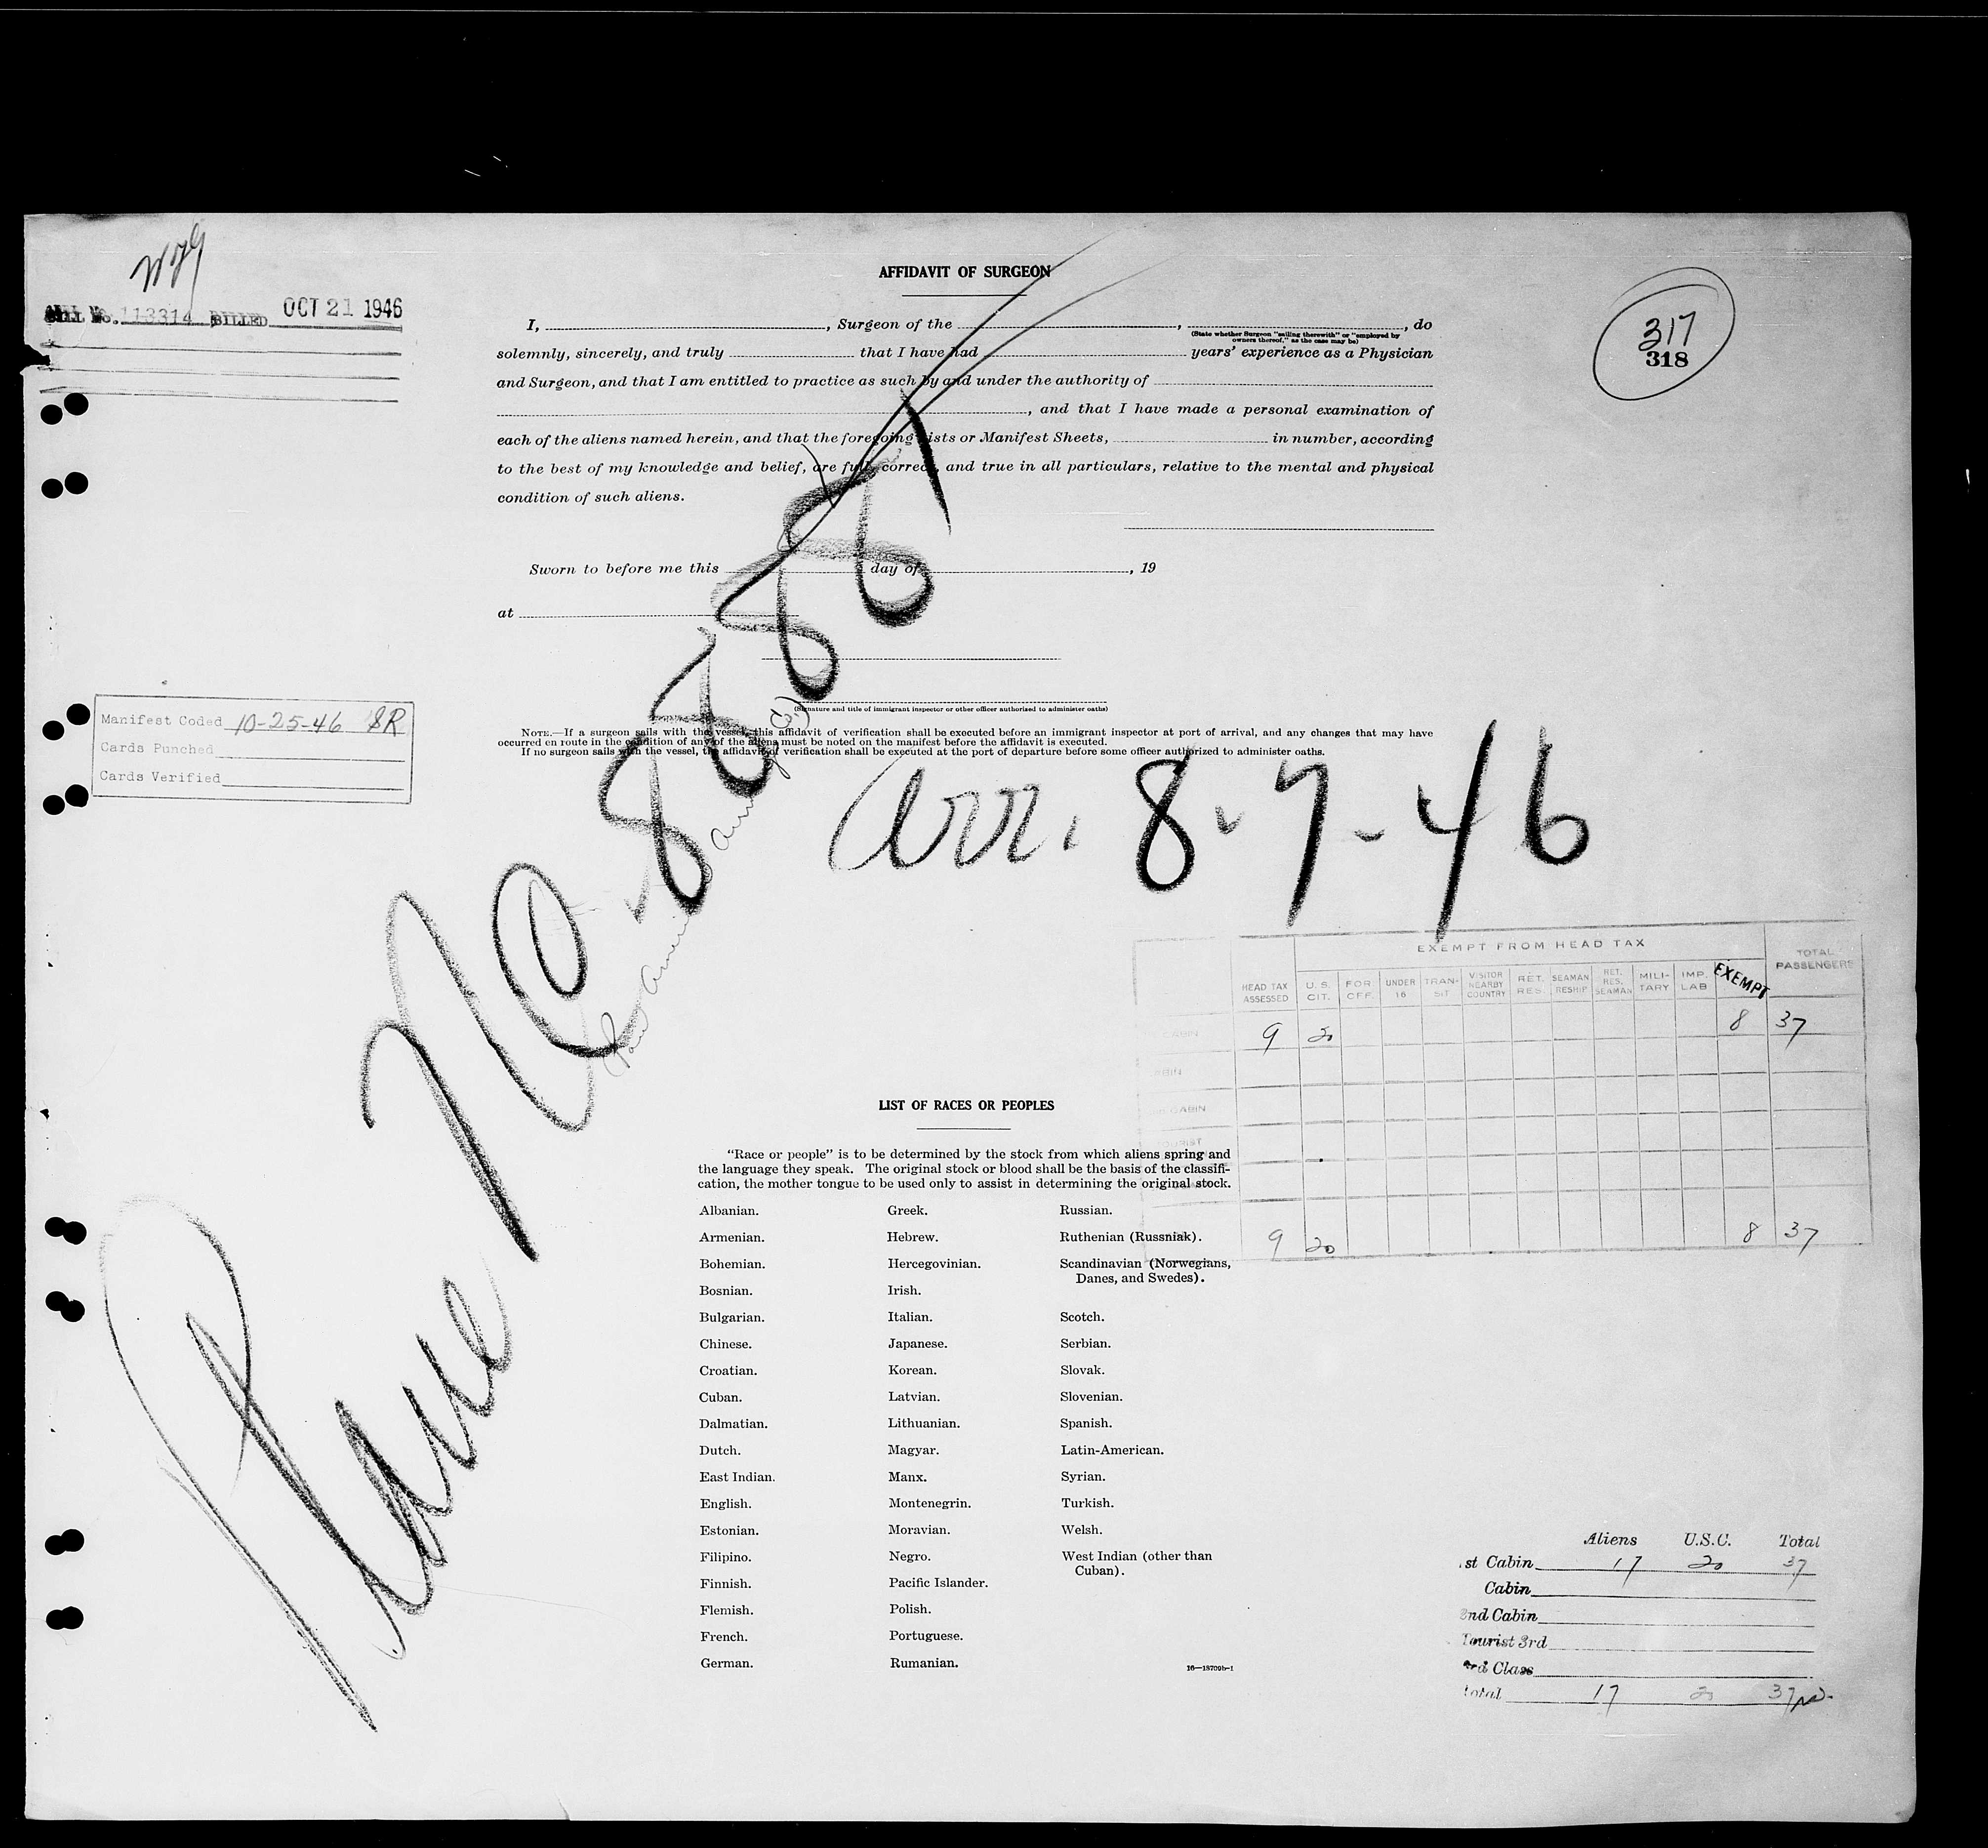 BILL No. 113314 BILLED OCT 21 1946
317
318
AFFIDAVIT OF SURGEON
I, , Surgeon of the , , do
(State whether Surgeon "sailing therewith" or "employed by
owners thereof," as the case may be)
solemnly, sincerely, and truly that I have had years' experience as a Physician
and Surgeon, and that I am entitled to practice as such by and under the authority of
, and that I have made a personal examination of
each of the aliens named herein, and that the foregoing Lists or Manifest Sheets, in number, according
to the best of my knowledge and belief, are full, correct, and true in all particulars, relative to the mental and physical
condition of such aliens.
Sworn to before me this day of , 19
at
(Signature and title of immigrant inspector or other officer authorized to administer oaths)
NOTE.—If a surgeon sails with the vessel, this affidavit of verification shall be executed before an immigrant inspector at port of arrival, and any changes that may have
occurred en route in the condition of any of the aliens must be noted on the manifest before the affidavit is executed.
If no surgeon sails with the vessel, the affidavit of verification shall be executed at the port of departure before some officer authorized to administer oaths.
Manifest Coded 10-25-46 SR
Cards Punched
Cards Verified
Plane NC-88881
(Pan American Airways
arr. 8-7-46
EXEMPT FROM HEAD TAX
HEAD TAX ASSESSED U.S. CIT. FOR OFF. UNDER 16 TRANSIT VISITOR NEARBY COUNTRY RET. RES. SEAMAN RESHIP RET. RES. SEAMAN MILITARY IMP. LAB EXEMPT TOTAL PASSENGERS
CABIN 9 20 8 37
CABIN
CABIN
TOURIST
9 20 8 37
LIST OF RACES OR PEOPLES
"Race or people" is to be determined by the stock from which aliens spring and
the language they speak. The original stock or blood shall be the basis of the classifi-
cation, the mother tongue to be used only to assist in determining the original stock.
Albanian. Greek. Russian.
Armenian. Hebrew. Ruthenian (Russniak).
Bohemian. Hercegovinian. Scandinavian (Norwegians,
Danes, and Swedes).
Bosnian. Irish.
Bulgarian. Italian. Scotch.
Chinese. Japanese. Serbian.
Croatian. Korean. Slovak.
Cuban. Latvian. Slovenian.
Dalmatian. Lithuanian. Spanish.
Dutch. Magyar. Latin-American.
East Indian. Manx. Syrian.
English. Montenegrin. Turkish.
Estonian. Moravian. Welsh.
Filipino. Negro. West Indian (other than
Cuban).
Finnish. Pacific Islander.
Flemish. Polish.
French. Portuguese.
German. Rumanian.
16—18709b-1
Aliens U.S.C. Total
st Cabin 17 20 37
Cabin
2nd Cabin
Tourist 3rd
rd Class
total 17 20 37